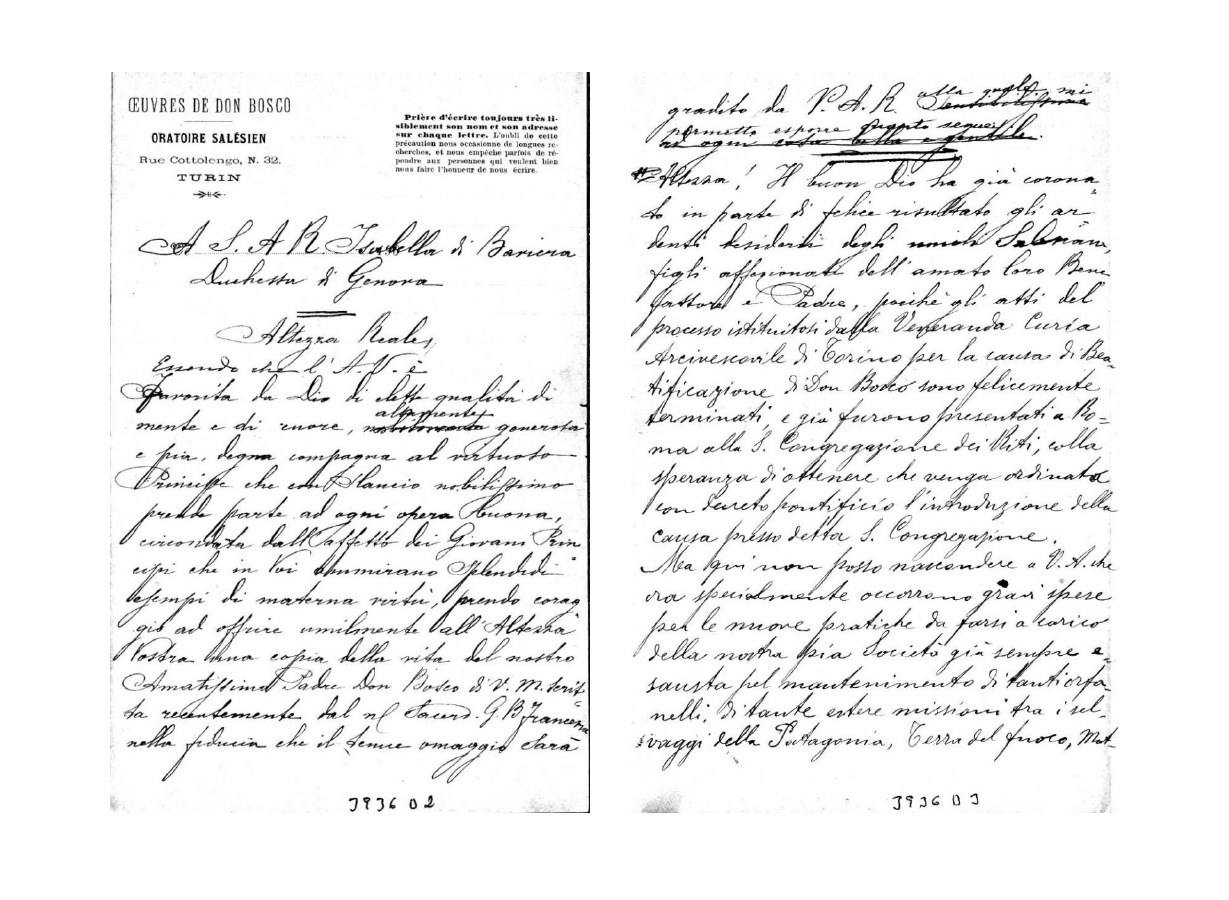 ŒUVRES DE DON BOSCO
ORATOIRE SALÉSIEN
Rue Cottolengo, N. 32.
TURIN
Prière d'écrire toujours très li-
siblement son nom et son adresse
sur chaque lettre. L'oubli de cette
précaution nous occasionne de longues re-
cherches, et nous empêche parfois de ré-
pondre aux personnes qui veulent bien
nous faire l'honneur de nous écrire.
A S. A R Isabella di Baviera
Duchessa di Genova
Altezza Reale,
Essendo che l' A. V. è
Favorita da Dio di elette qualità di
altamente
mente e di cuore, generosa
e pia, degna compagna al virtuoso
Principe che con slancio nobilissimo
prende parte ad ogni opera buona,
circondata dall'affetto dei Giovani Prin
cipi che in Voi ammirano splendidi
esempi di materna virtù, prendo corag
gio ad offrire umilmente all'Altezza
Vostra una copia della vita del nostro
Amatissimo Padre Don Bosco di V. M. scrit-
ta recentemente dal Sacerd. G. B. Francesia
nella fiducia che il tenue omaggio sarà
39362
gradito da V. A. R alla quale mi
permetto esporre quanto segue.
ad ogni cosa bella e gentile.
Altezza! Il buon Dio ha già corona-
to in parte di felice risultato gli ar-
denti desiderii degli umili Salesiani,
figli affezionati dell'amato loro Bene
fattore e Padre, poichè gli atti del
processo istituitosi dalla Veneranda Curia
Arcivescovile di Torino per la causa di Bea-
tificazione di Don Bosco sono felicemente
terminati, e già furono presentati a Ro=
ma alla S. Congregazione dei Riti, colla
speranza di ottenere che venga ordinata
con decreto pontificio l'introduzione della
causa presso detta S. Congregazione.
Ma qui non posso nascondere a V. A. che
ora specialmente occorrono gravi spese
per le nuove pratiche da farsi a carico
della nostra pia Società già sempre e-
sausta pel mantenimento di tanti orfa
nelli, di tante estere missioni tra i sel-
vaggi della Patagonia, Terra del fuoco, Mat-
393603